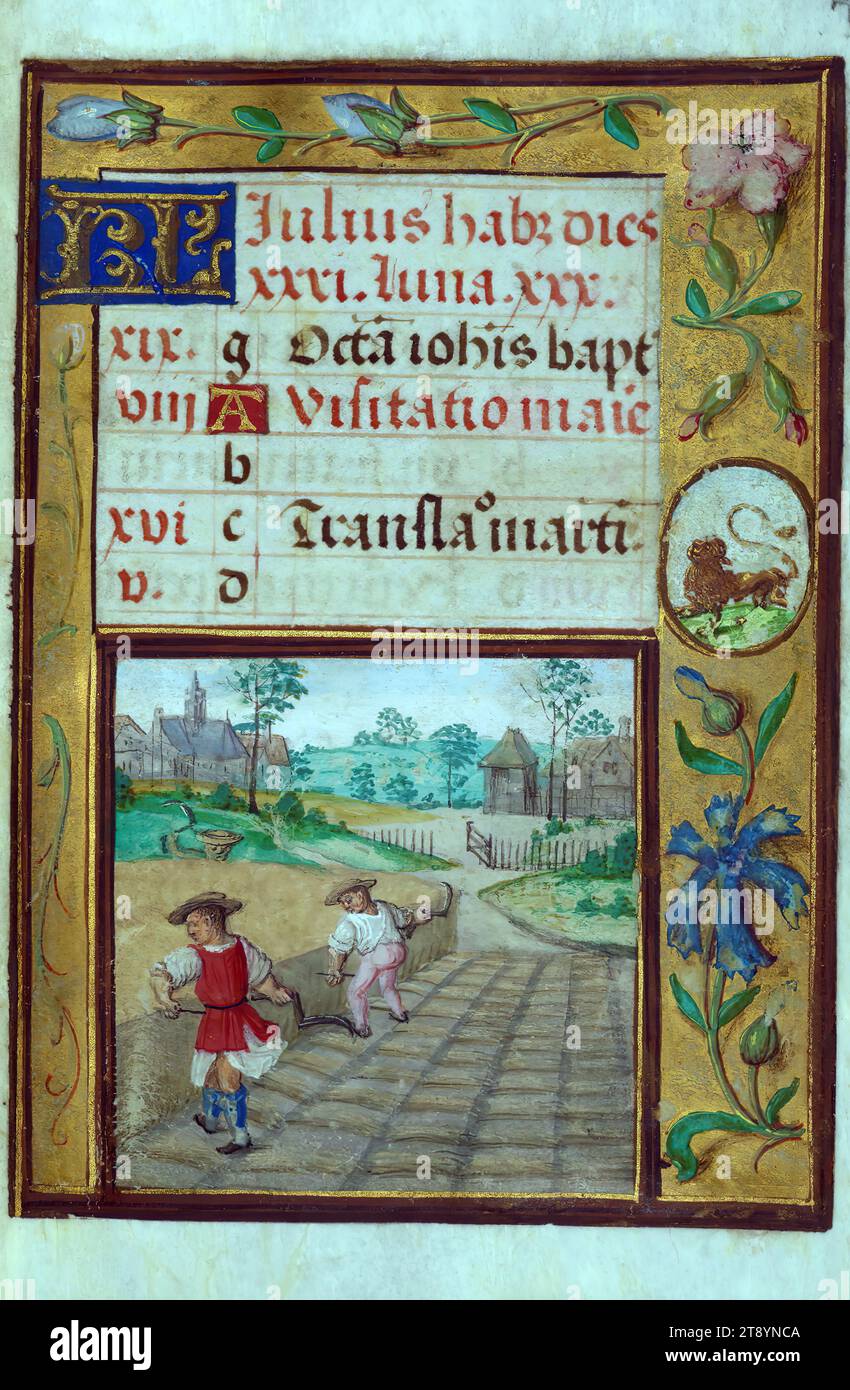 KL Iulius habꝫ dies
xxxi. luna. xxx.
xix. g Octā ioh̄is bapt
viij A Visitatio maie
b
xvi c Transla° marti.
v. d
alamy
Image ID: 2T8YNCA
www.alamy.com